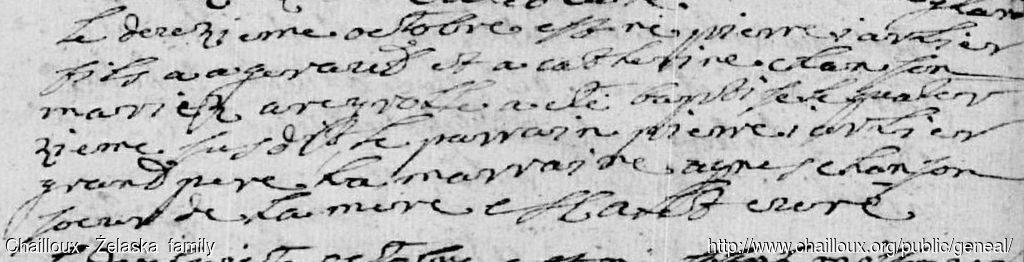 le dezezieme octobre est né pierre iartier
fils a a gerauld et a catherine chanson
mariez a reyrolle a été baptisé le quator
zieme susdit le parrain pierre iartier
grand pere la marraine agnes chanson
soeur de la mere curé
Chailloux - Żelaska family http://www.chailloux.org/public/geneal/
octobre